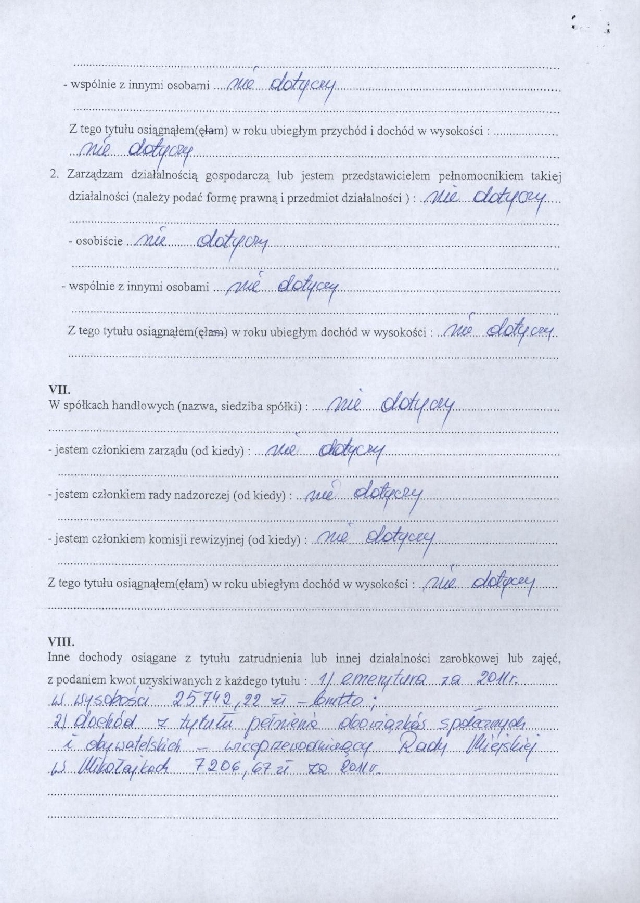 - wspólnie z innymi osobami ... nie dotyczy
Z tego tytułu osiągnąłem(ęłam) w roku ubiegłym przychód i dochód w wysokości :
nie dotyczy
2. Zarządzam działalnością gospodarczą lub jestem przedstawicielem pełnomocnikiem takiej
działalności (należy podać formę prawną i przedmiot działalności ) : nie dotyczy
- osobiście nie dotyczy
- wspólnie z innymi osobami nie dotyczy
Z tego tytułu osiągnąłem(ęłam) w roku ubiegłym dochód w wysokości : nie dotyczy
VII.
W spółkach handlowych (nazwa, siedziba spółki) : nie dotyczy
- jestem członkiem zarządu (od kiedy) : nie dotyczy
- jestem członkiem rady nadzorczej (od kiedy) : nie dotyczy
- jestem członkiem komisji rewizyjnej (od kiedy) : nie dotyczy
Z tego tytułu osiągnąłem(ęłam) w roku ubiegłym dochód w wysokości : nie dotyczy
VIII.
Inne dochody osiągane z tytułu zatrudnienia lub innej działalności zarobkowej lub zajęć,
z podaniem kwot uzyskiwanych z każdego tytułu : 1) emerytura za 2011r.
w wysokości 25742,22 zł - brutto ;
2) dochód z tytułu pełnienia obowiązków społecznych
i obywatelskich - wiceprzewodniczący Rady Miejskiej
w Mikołajkach 7206,67 zł za 2011r.